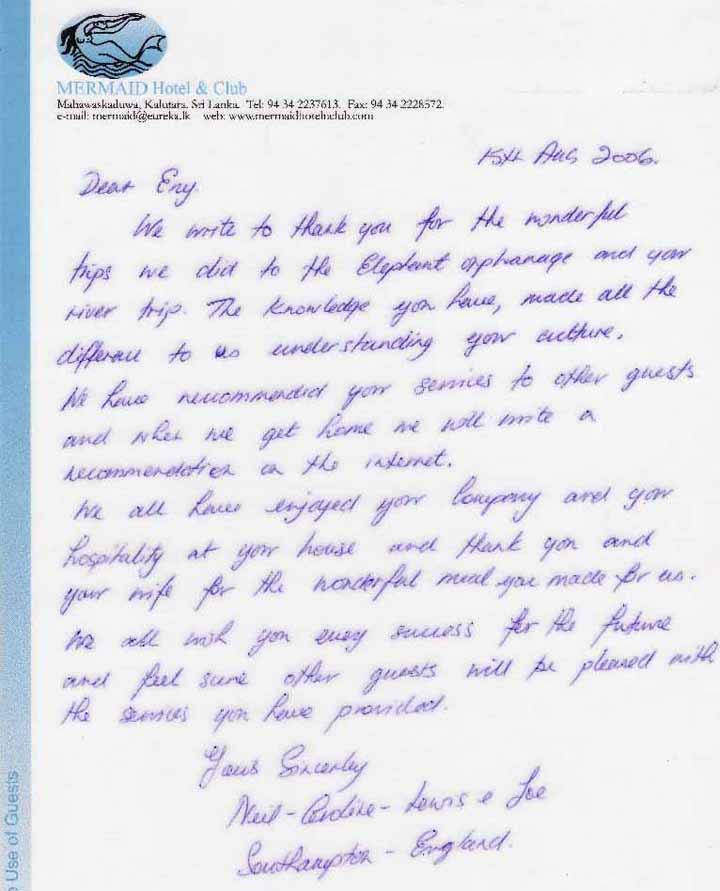 MERMAID Hotel & Club
Mahawaskaduwa, Kalutara. Sri Lanka. Tel: 94 34 2237613. Fax: 94 34 2228572.
e-mail: mermaid@eureka.lk web: www.mermaidhotelnclub.com
15th Aug 2006.
Dear Eny.
We write to thank you for the wonderful
trips we did to the Elephant orphanage and your
river trip. The knowledge you have, made all the
difference to us understanding your culture.
We have recommended your services to other guests
and when we get home we will write a
recommendation on the internet.
We all have enjoyed your company and your
hospitality at your house and thank you and
your wife for the wonderful meal you made for us.
We all wish you every success for the future
and feel sure other guests will be pleased with
the services you have provided.
Yours Sincerley
Neil - Caroline - Lewis & Joe
Southampton - England.
Use of Guests